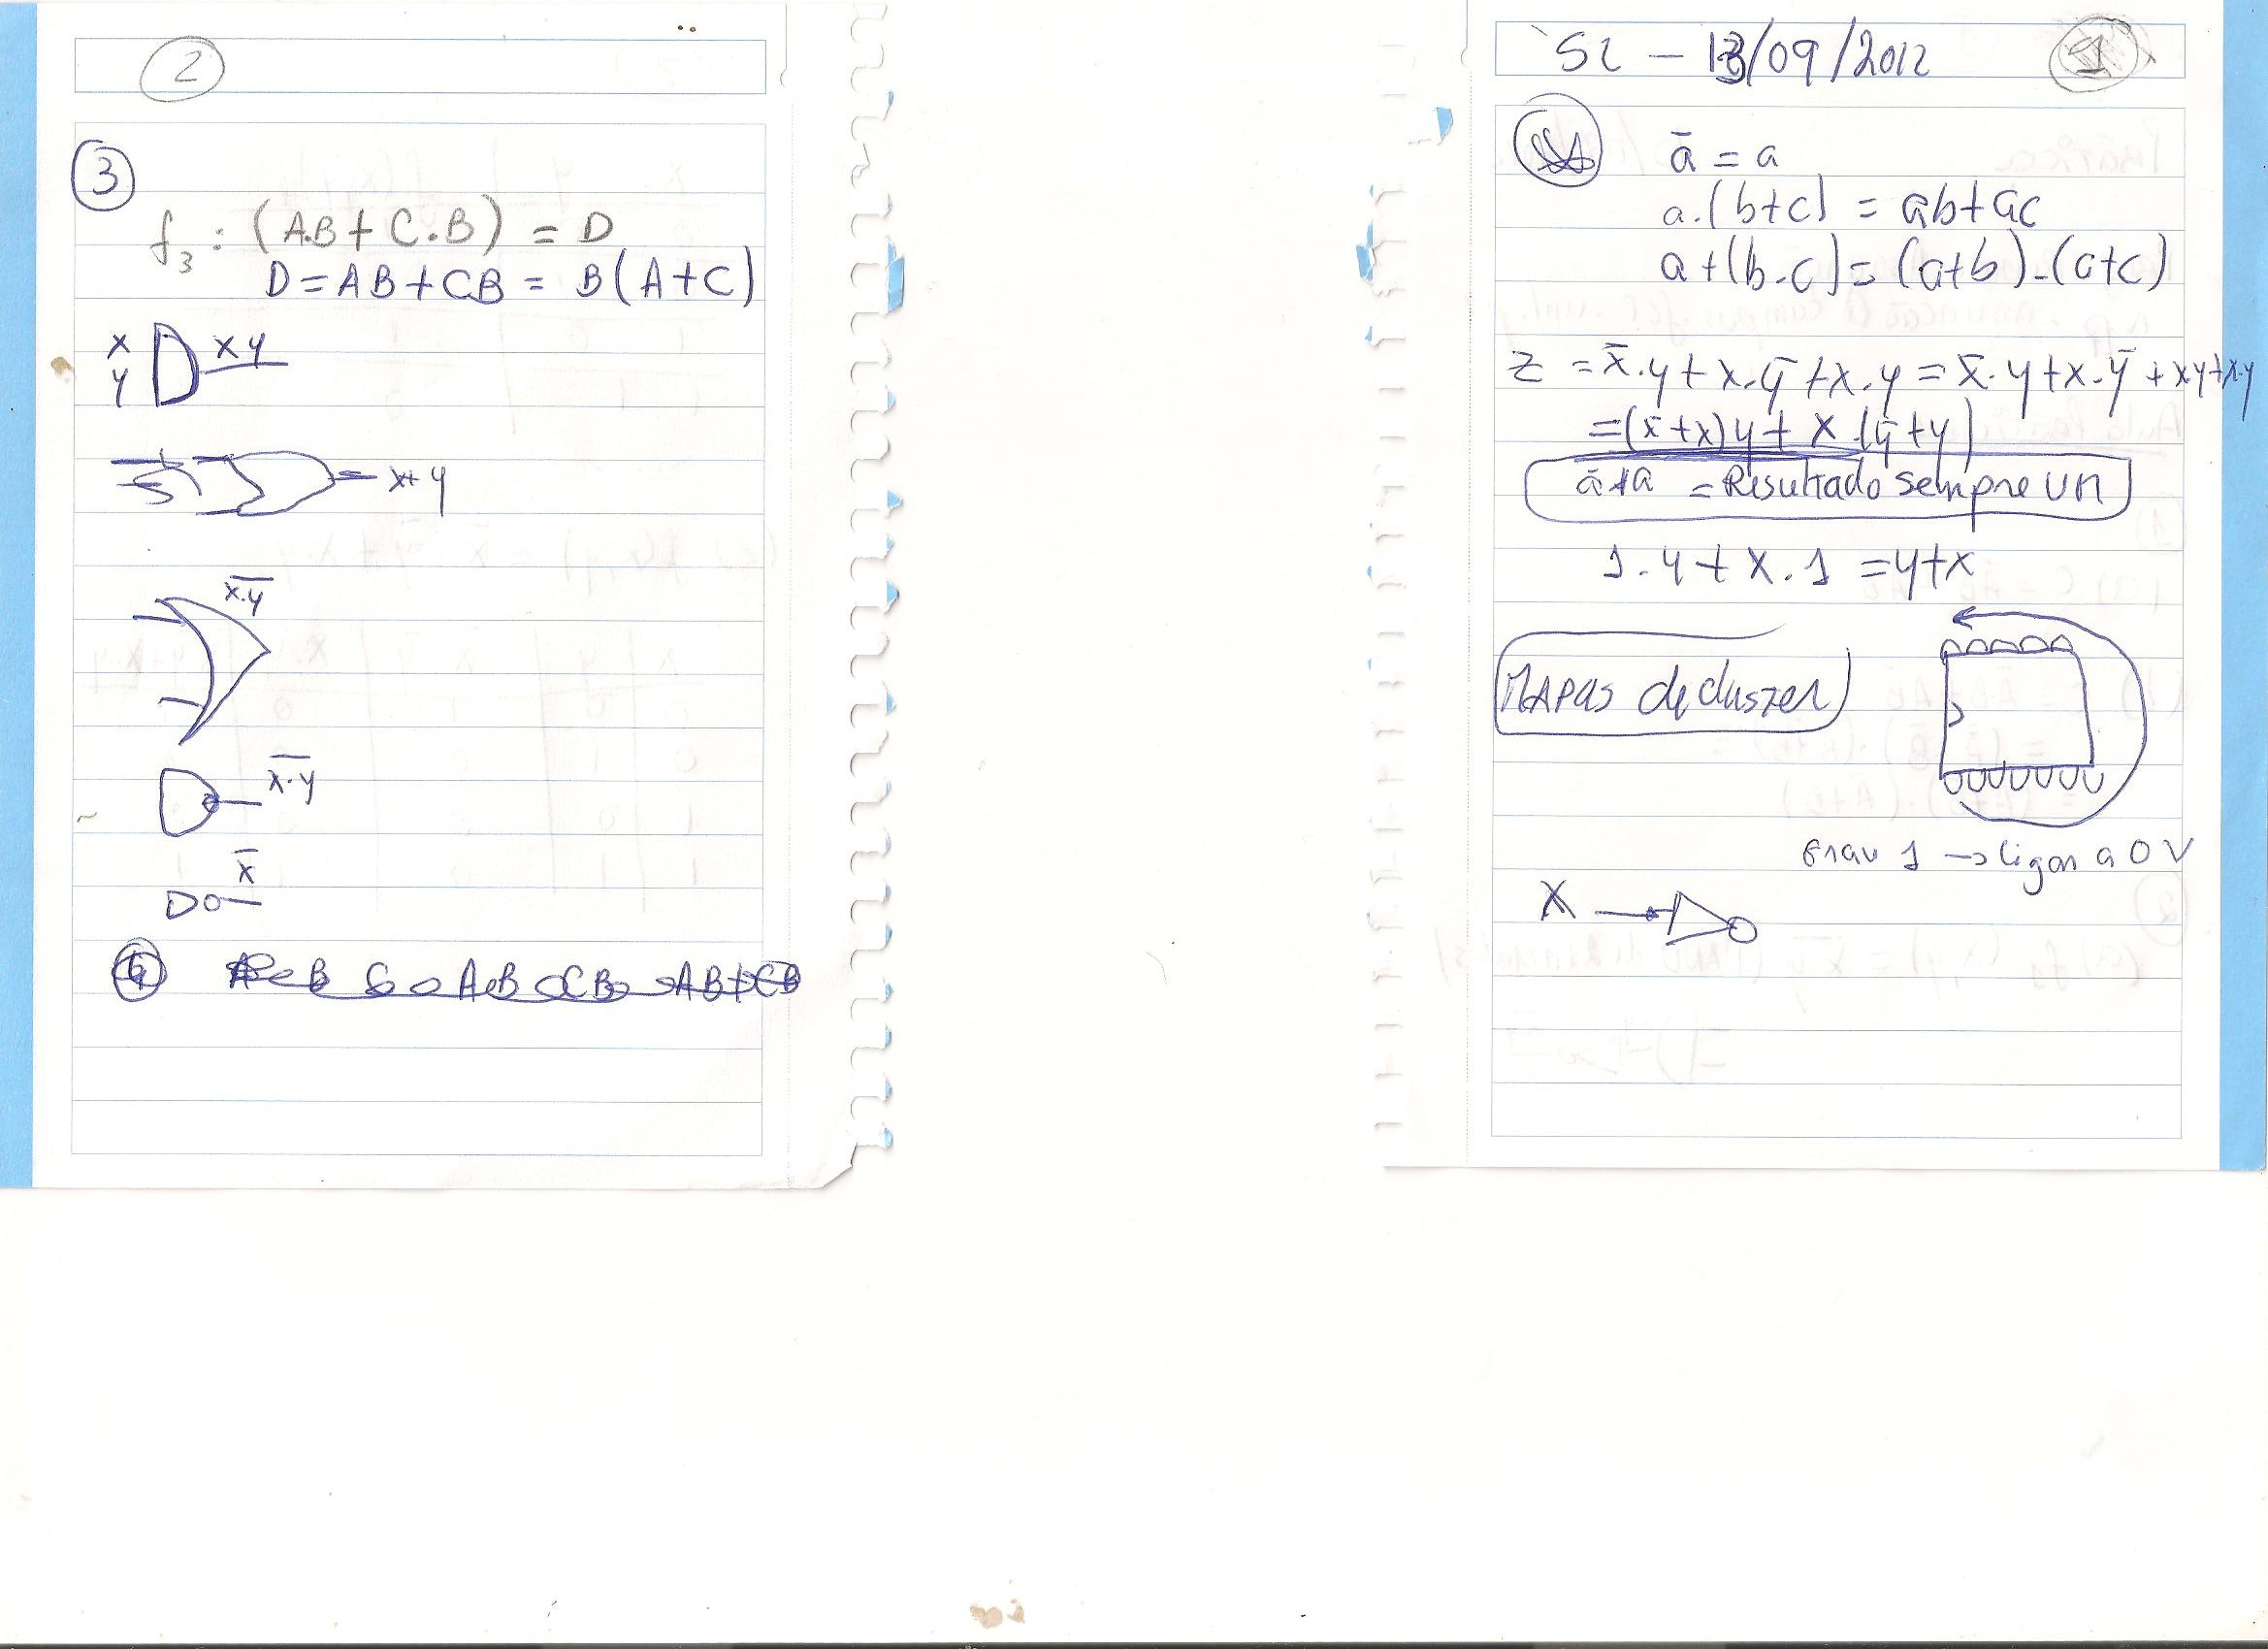 2
3
f₃ : (A.B + C.B) = D
D = AB + CB = B(A+C)
x
y
xy
x+y
x.y̅
x̅.̅y̅
x̅
4
A B C A.B CB AB+CB
SI - 13/09/2012
1
ā = a
a.(b+c) = ab+ac
a+(b.c) = (a+b).(a+c)
z = x̅.y + x.y̅ + x.y = x̅.y + x.y̅ + xy + x.y
= (x̅+x)y + x.(y̅+y)
ā+a = Resultado sempre um
1.y + x.1 = y+x
MAPAS de
Grau 1 → ligar a 0 V
X